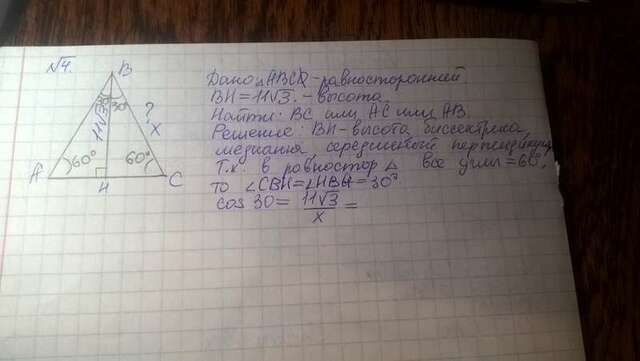 √4.
B
30° 30°
11√3
?
x
60° 60°
A H C
Дано △ABC - равносторонний
BH = 11√3. - высота
Найти: BC или AC или AB.
Решение: BH - высота, биссектриса,
медиана, серединный перпендикуляр
Т.к. в равностор △ все углы = 60°,
то ∠CBH = ∠HBA = 30°
cos 30 = 11√3 / x =